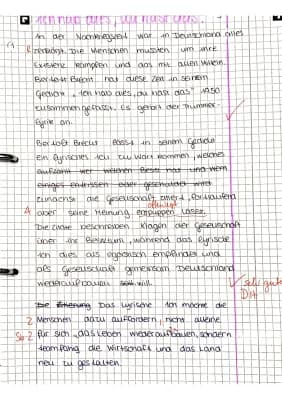 Ich hab dies, du hast das.
In der Nachkriegszeit war in Deutschland alles
R zerstört. Die Menschen mussten um ihre
Existenz kämpfen und das mit allen Mitteln.
Bertolt Brecht hat diese Zeit in seinem
Gedicht „Ich hab dies, du hast das" 1950
zusammengefasst. Es gehört der Trümmer-
lyrik an.
Bertolt Brecht lässt in seinem Gedicht
ein lyrisches Ich zu Wort kommen, welches
aufzählt wer welchen Besitz hat und wem
einiges entrissen oder gestohlen wird
zunächst die Gesellschaft zitiert, fortlaufend
A aber seine Meinung entpuppen lässt.
Die Zitate beschreiben Klagen der Gesellschaft
über ihr Besitztum, während das lyrische
Ich dies als egoistisch empfindet und
als Gesellschaft gemeinsam Deutschland
wiederaufbauen will.
sehr gute
Die Zitierung Das lyrische Ich möchte die
Z Menschen dazu auffordern, nicht alleine
Sb Z für sich das Leben wiederaufbauen, sondern
die Wirtschaft und das Land
neu zu gestalten.